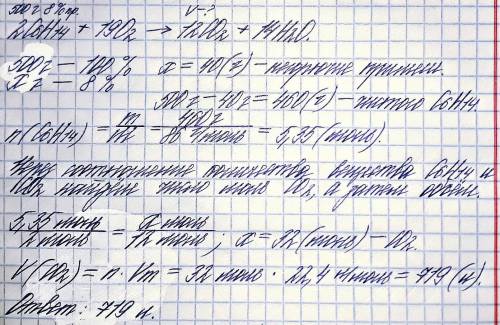 500г 8% пр. V-?
2C6H14 + 19O2 → 12CO2 + 14H2O.
500г — 100% x = 40(г) – негорючие примеси.
xг — 8%
500г – 40г = 460(г) – чистого C6H14.
n(C6H14) = m/M = 460г/86 г/моль = 5,35 (моль).
соотношение количества вещества C6H14 и
CO2 найдем число моль CO2, а затем объём.
5,35 моль/2 моль = x моль/12 моль; x = 32 (моль) – CO2.
V(CO2) = n · Vm = 32 моль · 22,4 л/моль = 719 (л).
Ответ: 719 л.